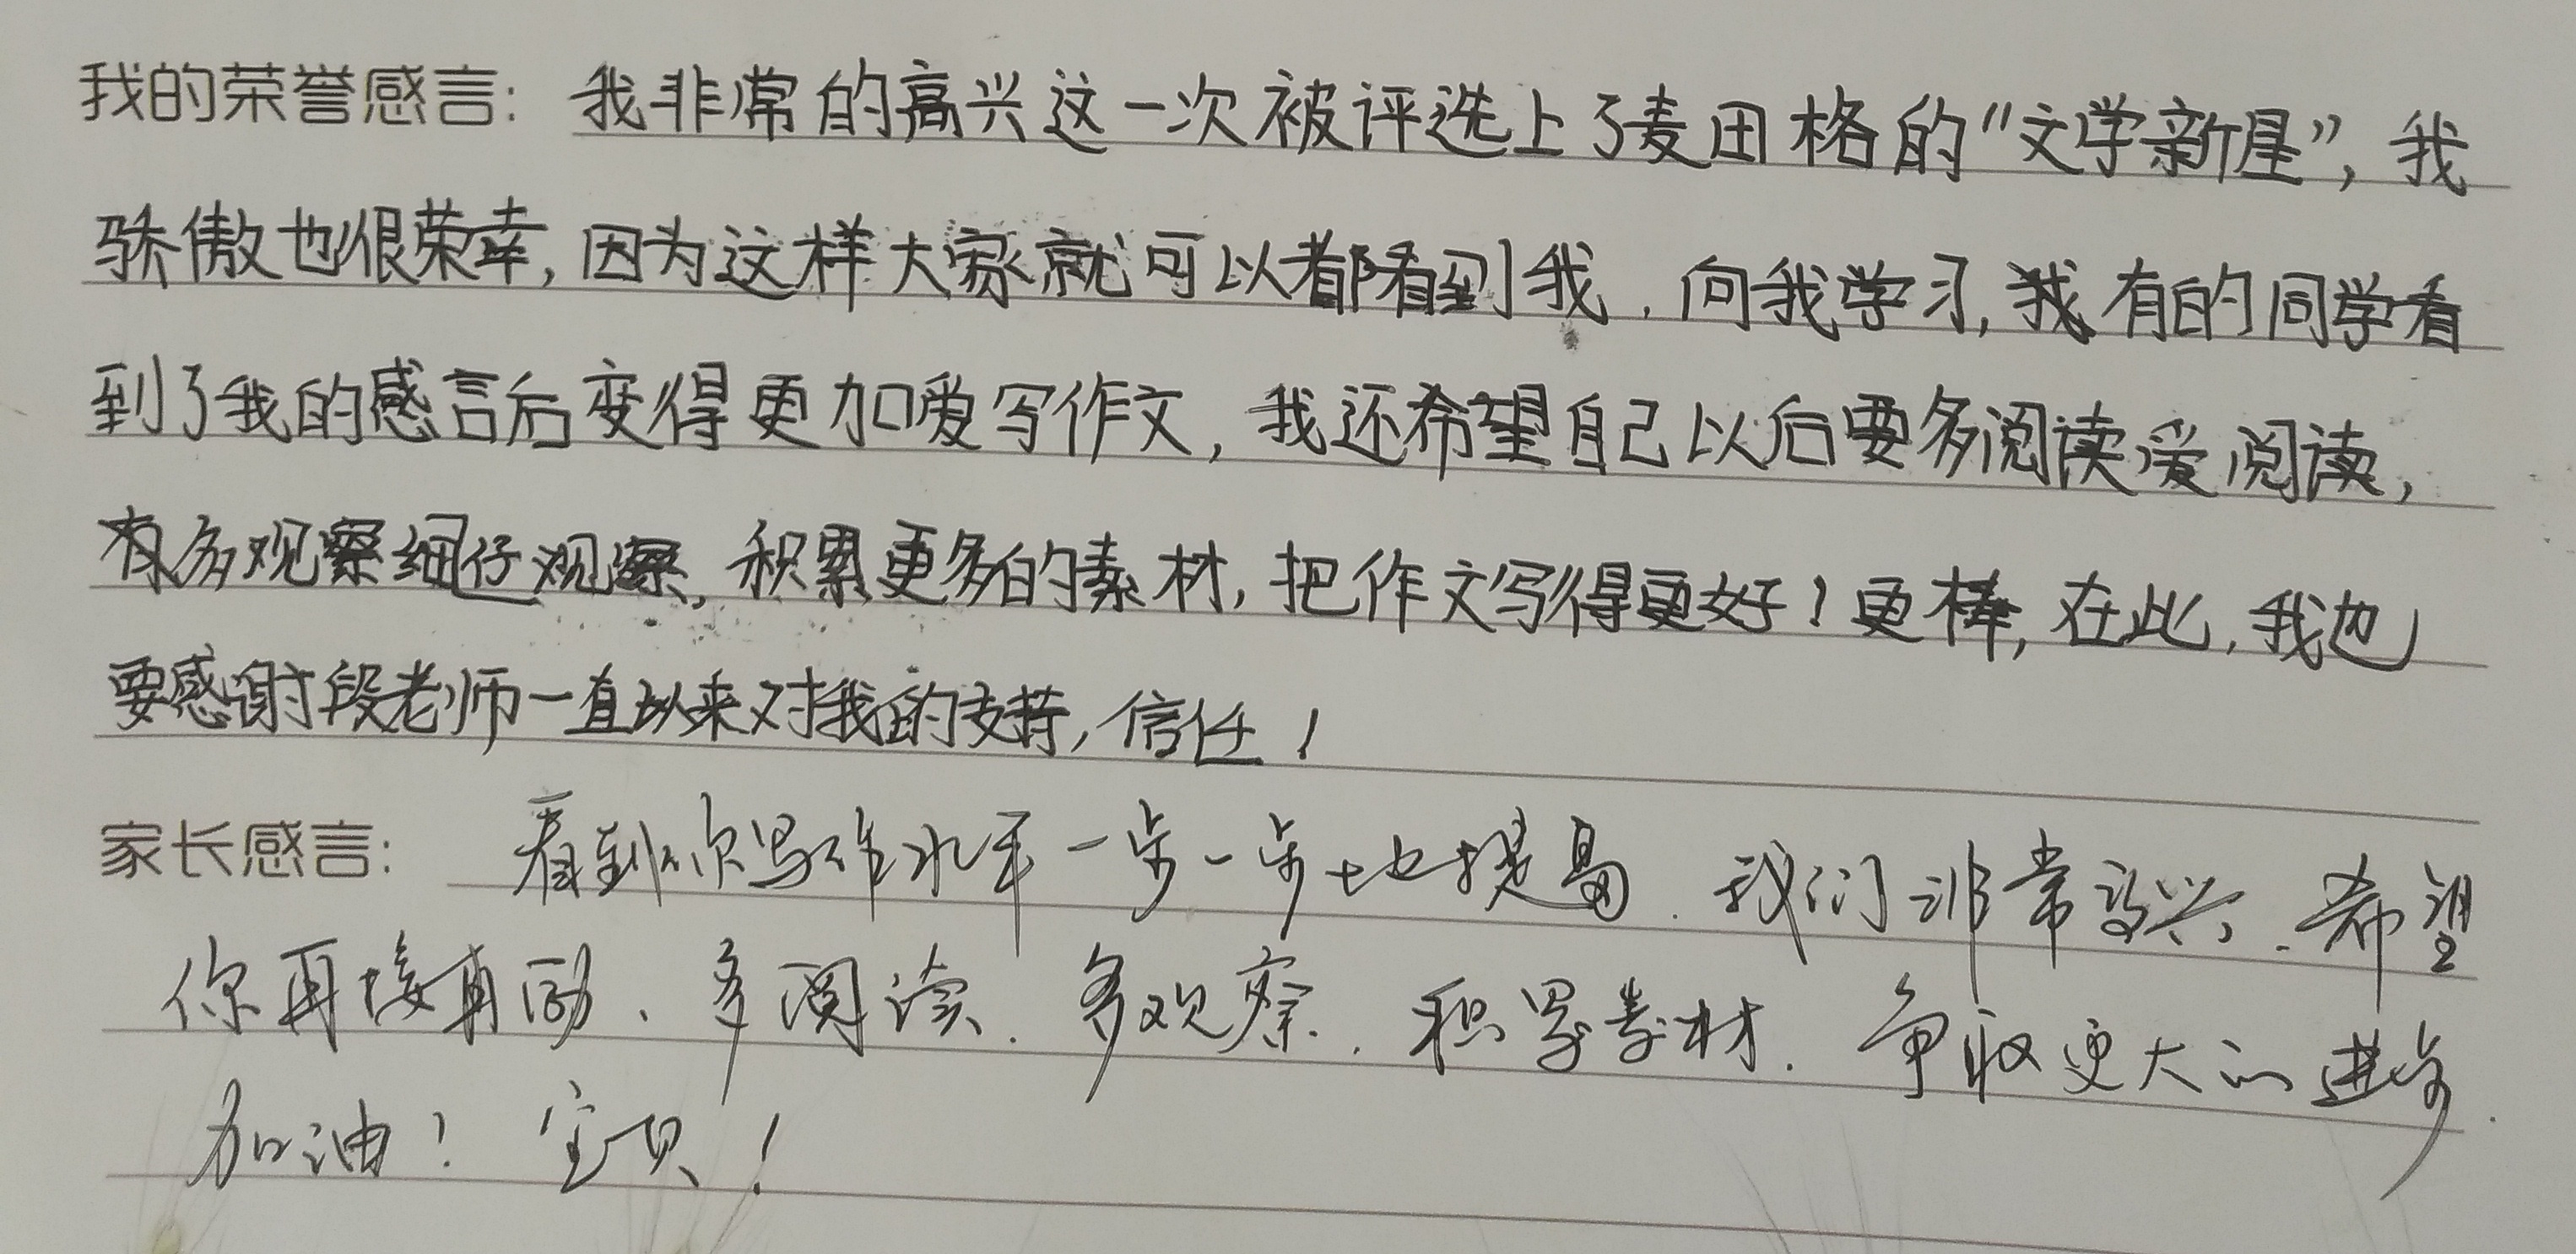 我的荣誉感言：我非常的高兴这一次被评选上了麦田格的“文学新星”，我
骄傲也很荣幸，因为这样大家就可以都看到我，向我学习，我有的同学看
到了我的感言后变得更加爱写作文，我还希望自己以后要多阅读爱阅读，
有多观察细仔观察，积累更多的素材，把作文写得更好！更棒，在此，我也
要感谢段老师一直以来对我的支持，信任！
家长感言：看到你写作水平一步一步地提高，我们非常高兴，希望
你再接再励、多阅读、多观察，积累素材，争取更大的进步．
加油！宝贝！